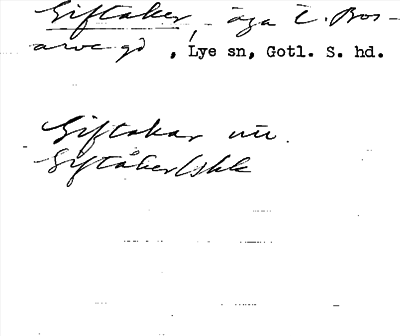 Giftaker, äga i. Bos-
arve gd, Lye sn, Gotl. S. hd.
Giftakar
Giftåker/skk